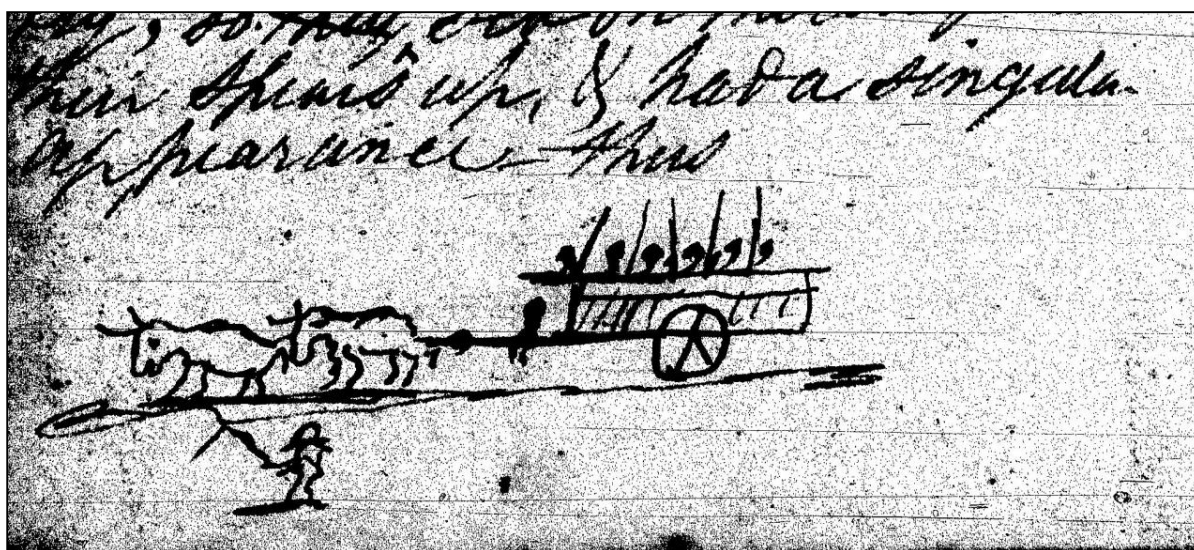 their spears up, & had a singular
appearance - thus